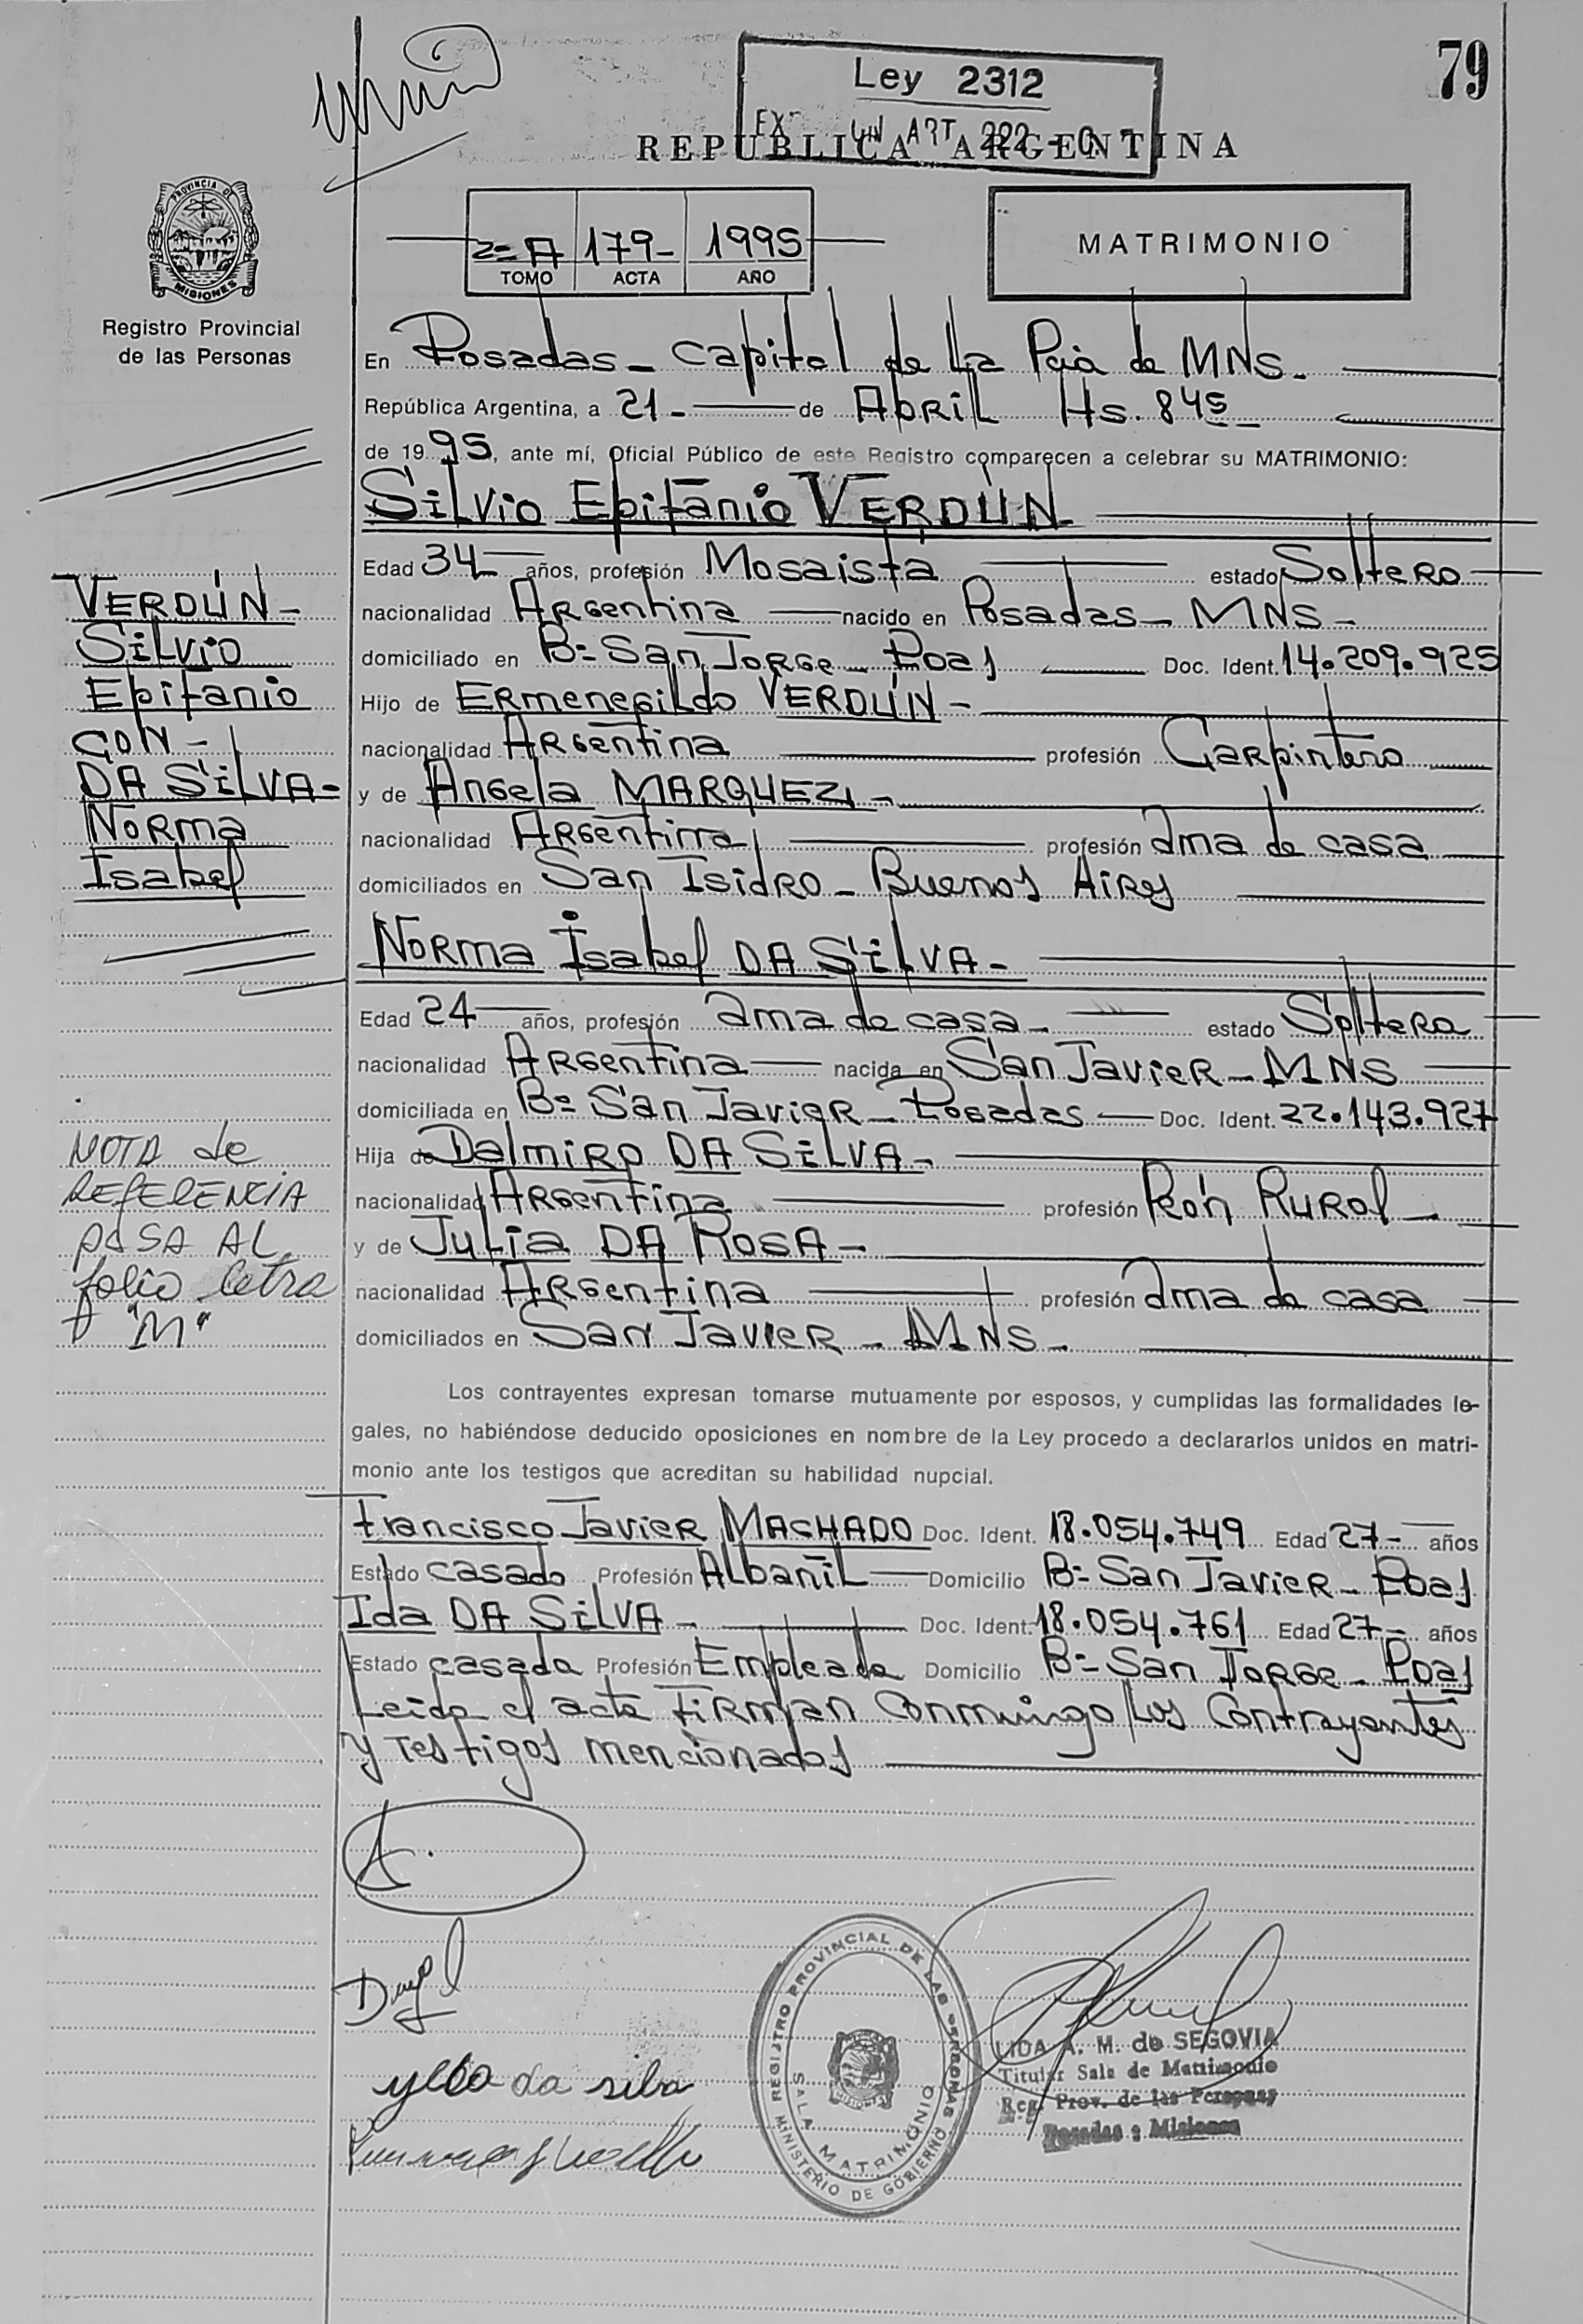 79
Ley 2312
EX- UN ART 222 - C 7
REPUBLICA ARGENTINA
PROVINCIA DE
MISIONES
Registro Provincial
de las Personas
2=A 179- 1995
TOMO ACTA AÑO
MATRIMONIO
En Posadas - Capital de la Pcia de MNS.
República Argentina, a 21 - de Abril Hs. 845
de 1995, ante mí, Oficial Público de este Registro comparecen a celebrar su MATRIMONIO:
Silvio Epifanio VERDÚN
Edad 34 años, profesión Mosaista estado Soltero
nacionalidad Argentina nacido en Posadas - MNS -
domiciliado en B= San Jorge - Pdas Doc. Ident. 14.209.925
Hijo de Ermenegildo VERDÚN -
nacionalidad Argentina profesión Carpintero
y de Angela MARQUEZ -
nacionalidad Argentina profesión ama de casa
domiciliados en San Isidro - Buenos Aires
Norma Isabel DA SILVA -
Edad 24 años, profesión ama de casa - estado Soltera
nacionalidad Argentina nacida en San Javier - MNS
domiciliada en B= San Javier - Posadas Doc. Ident. 22.143.927
Hija de Dalmiro DA SILVA -
nacionalidad Argentina profesión Peón Rural -
y de Julia DA ROSA -
nacionalidad Argentina profesión ama de casa
domiciliados en San Javier - MNS -
Los contrayentes expresan tomarse mutuamente por esposos, y cumplidas las formalidades le-
gales, no habiéndose deducido oposiciones en nombre de la Ley procedo a declararlos unidos en matri-
monio ante los testigos que acreditan su habilidad nupcial.
Francisco Javier MACHADO Doc. Ident. 18.054.749 Edad 27 - años
Estado casado Profesión Albañil Domicilio B= San Javier - Pdas
Ida DA SILVA - Doc. Ident. 18.054.761 Edad 27 - años
Estado casada Profesión Empleada Domicilio B= San Jorge - Pdas
Leída el acta Firman Conmigo los Contrayentes
y Testigos mencionados
VERDÚN -
Silvio
Epifanio
CON -
DA SILVA -
Norma
Isabel
NOTA de
REFERENCIA
PASA AL
folio letra
"M"
da silva
REGISTRO PROVINCIAL DE LAS PERSONAS
SALA MATRIMONIO
MINISTERIO DE GOBIERNO
LIDA A. M. de SEGOVIA
Titular Sala de Matrimonio
Reg. Prov. de las Personas
Posadas - Misiones